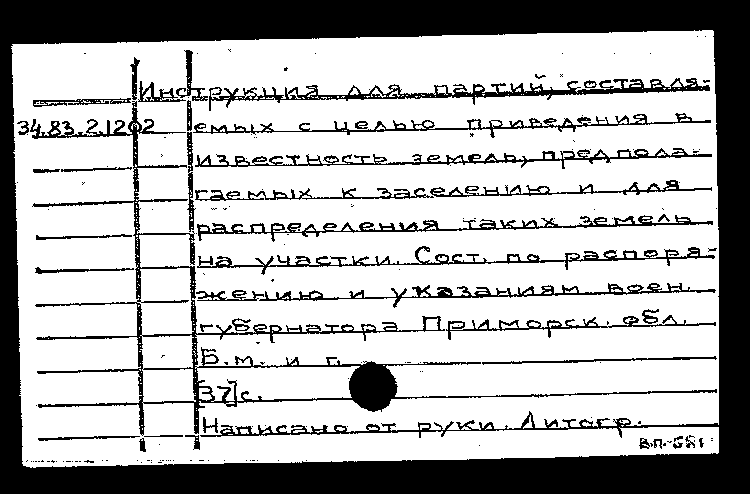 Инструкция для партий, составля-
34.83.2.1202 емых с целью приведения в
известность земель, предпола-
гаемых к заселению и для
распределения таких земель
на участки. Сост. по распоря-
жению и указаниям воен.
губернатора Приморск. обл.
Б.м. и г.
[37]с.
Написано от руки. Литогр.